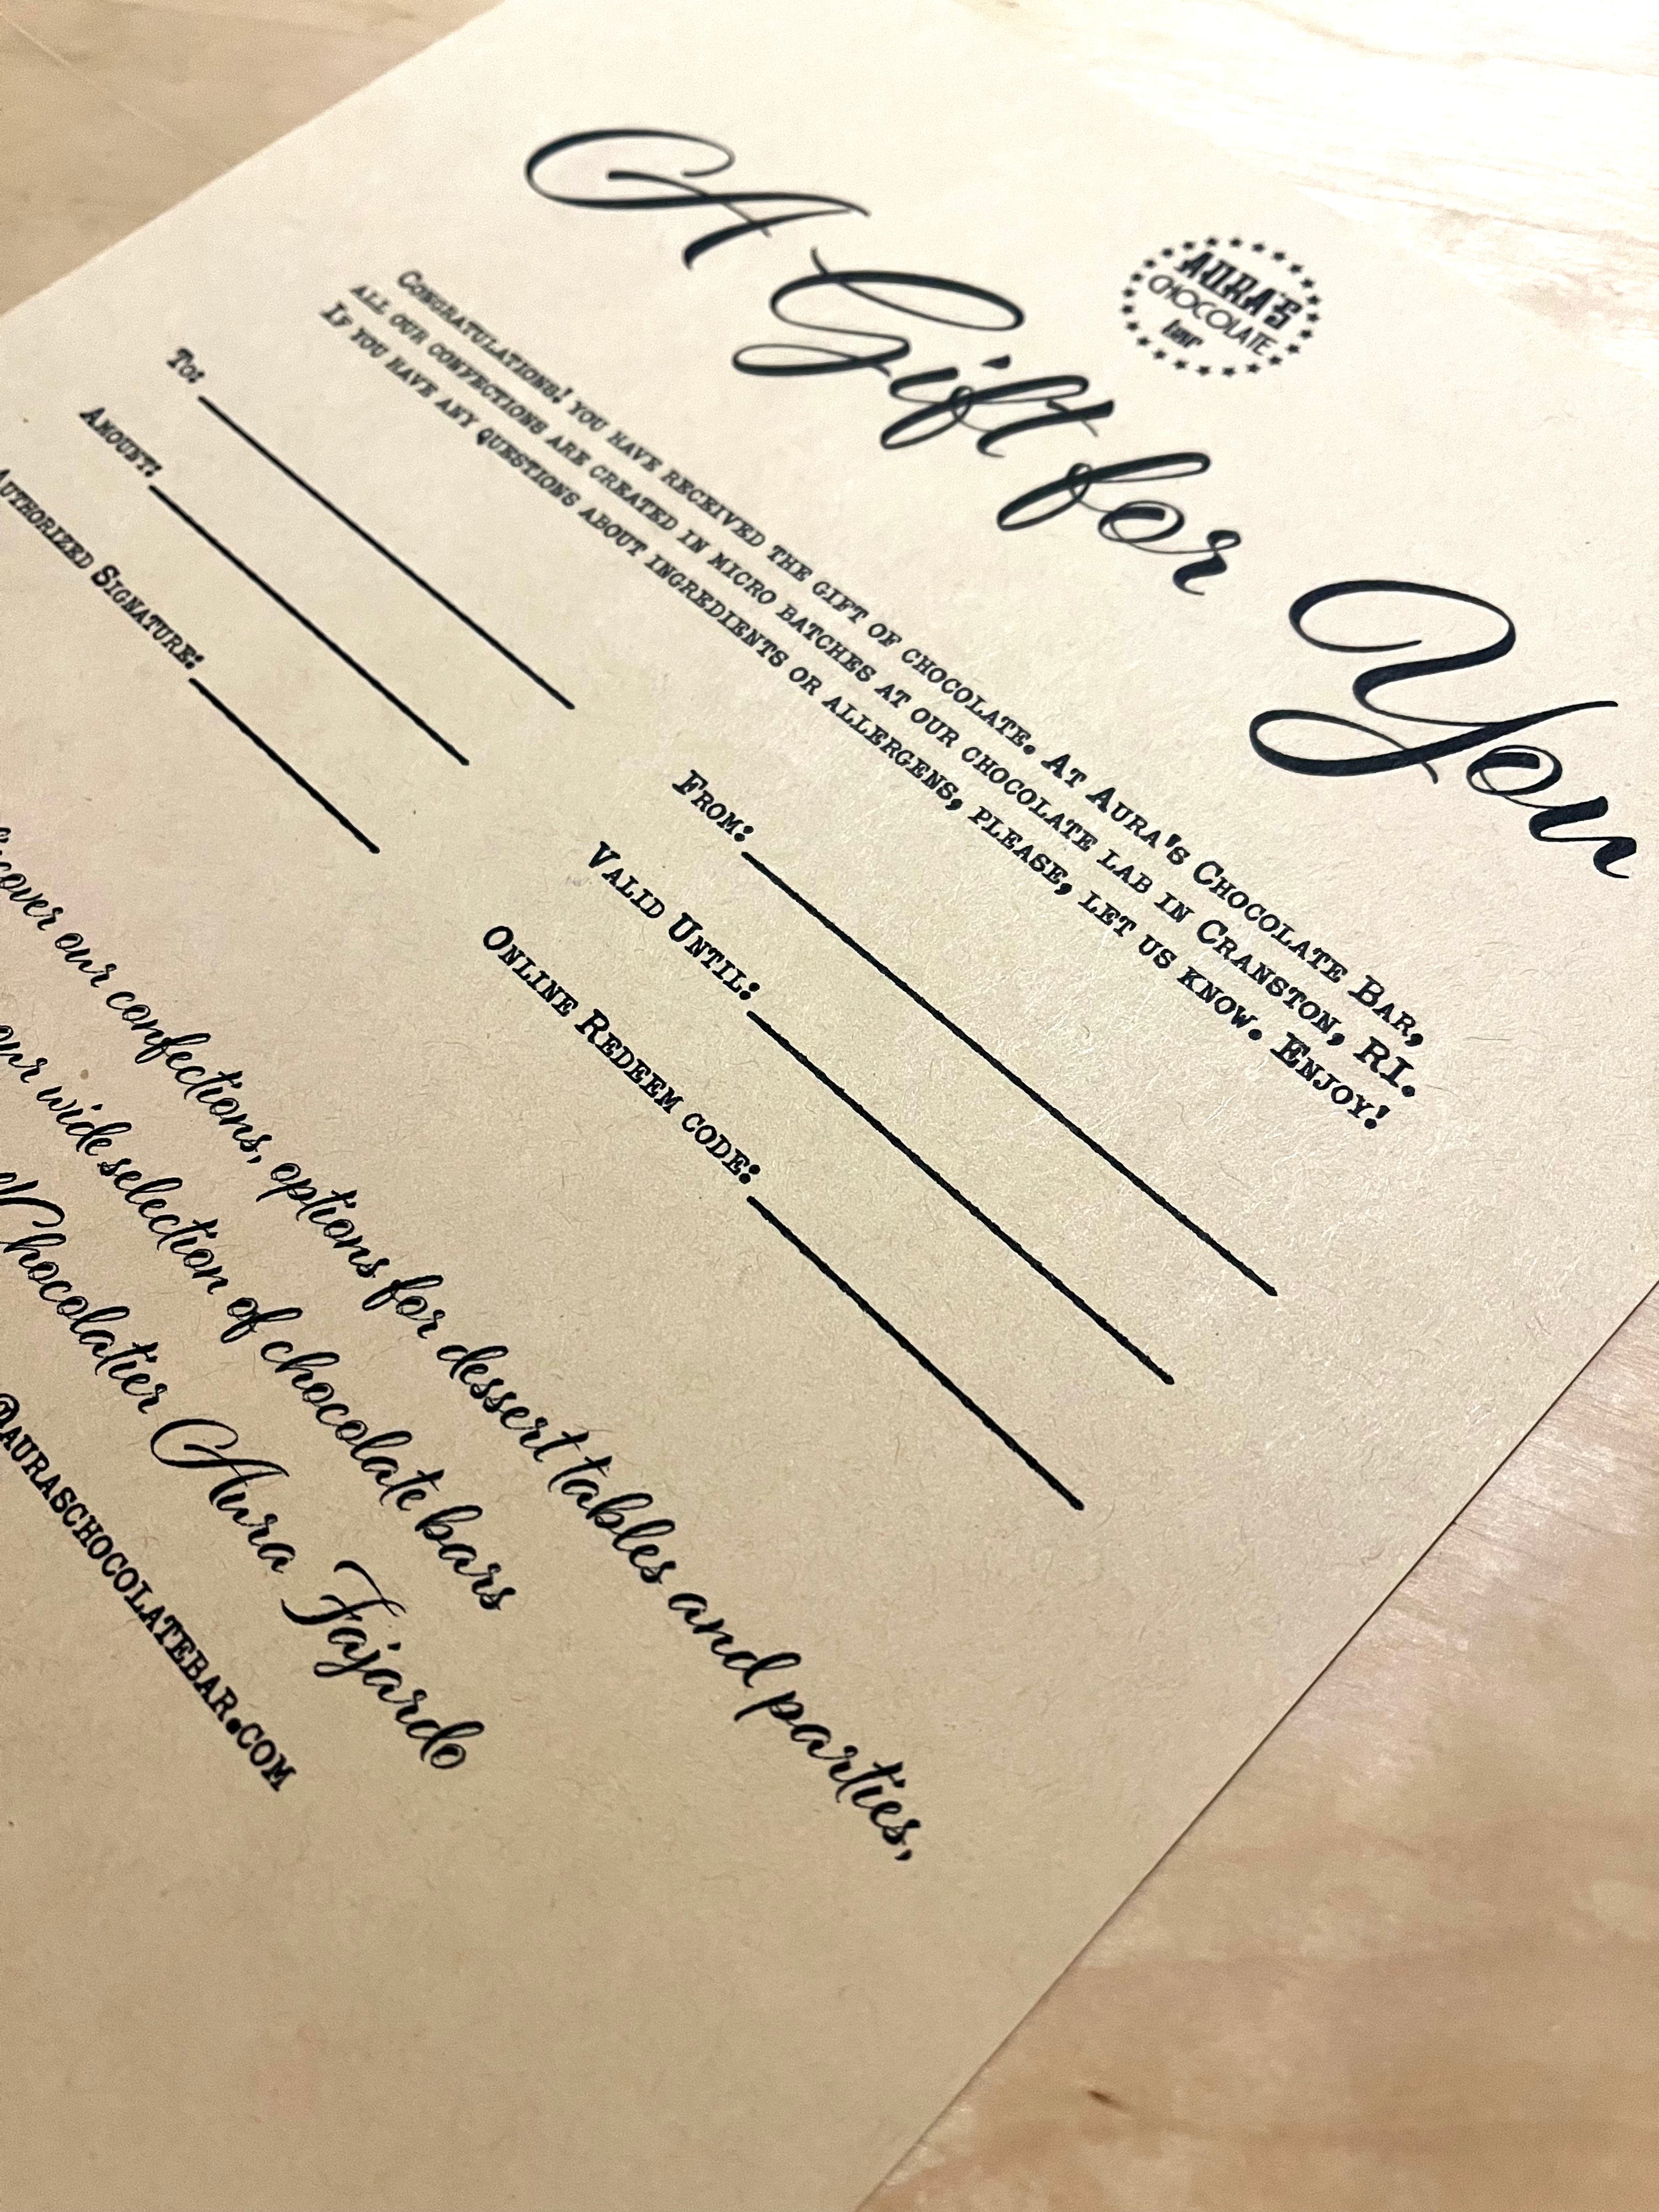 AURA'S
CHOCOLATE
bar
A Gift for You
Congratulations! you have received the gift of chocolate. At Aura's Chocolate Bar,
all our confections are created in micro batches at our chocolate lab in Cranston, RI.
If you have any questions about ingredients or allergens, please, let us know. Enjoy!
To:
From:
Amount:
Valid Until:
Authorized Signature:
Online Redeem code:
our confections, options for dessert tables and parties,
our wide selection of chocolate bars
Chocolatier Aura Fajardo
@auraschocolatebar.com